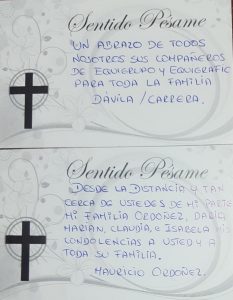 Sentido Pésame
UN ABRAZO DE TODOS
NOSOTROS SUS COMPAÑEROS
DE EQUIGRUPO Y EQUIGRAFIC
PARA TODA LA FAMILIA
DÁVILA / CARRERA.
Sentido Pésame
DESDE LA DISTANCIA Y TAN
CERCA DE USTEDES DE MI PARTE
MI FAMILIA ORDOÑEZ, DARÍO,
MARIAN, CLAUDIA, E ISABELA MIS
CONDOLENCIAS A USTED Y A
TODA SU FAMILIA.
MAURICIO ORDOÑEZ.